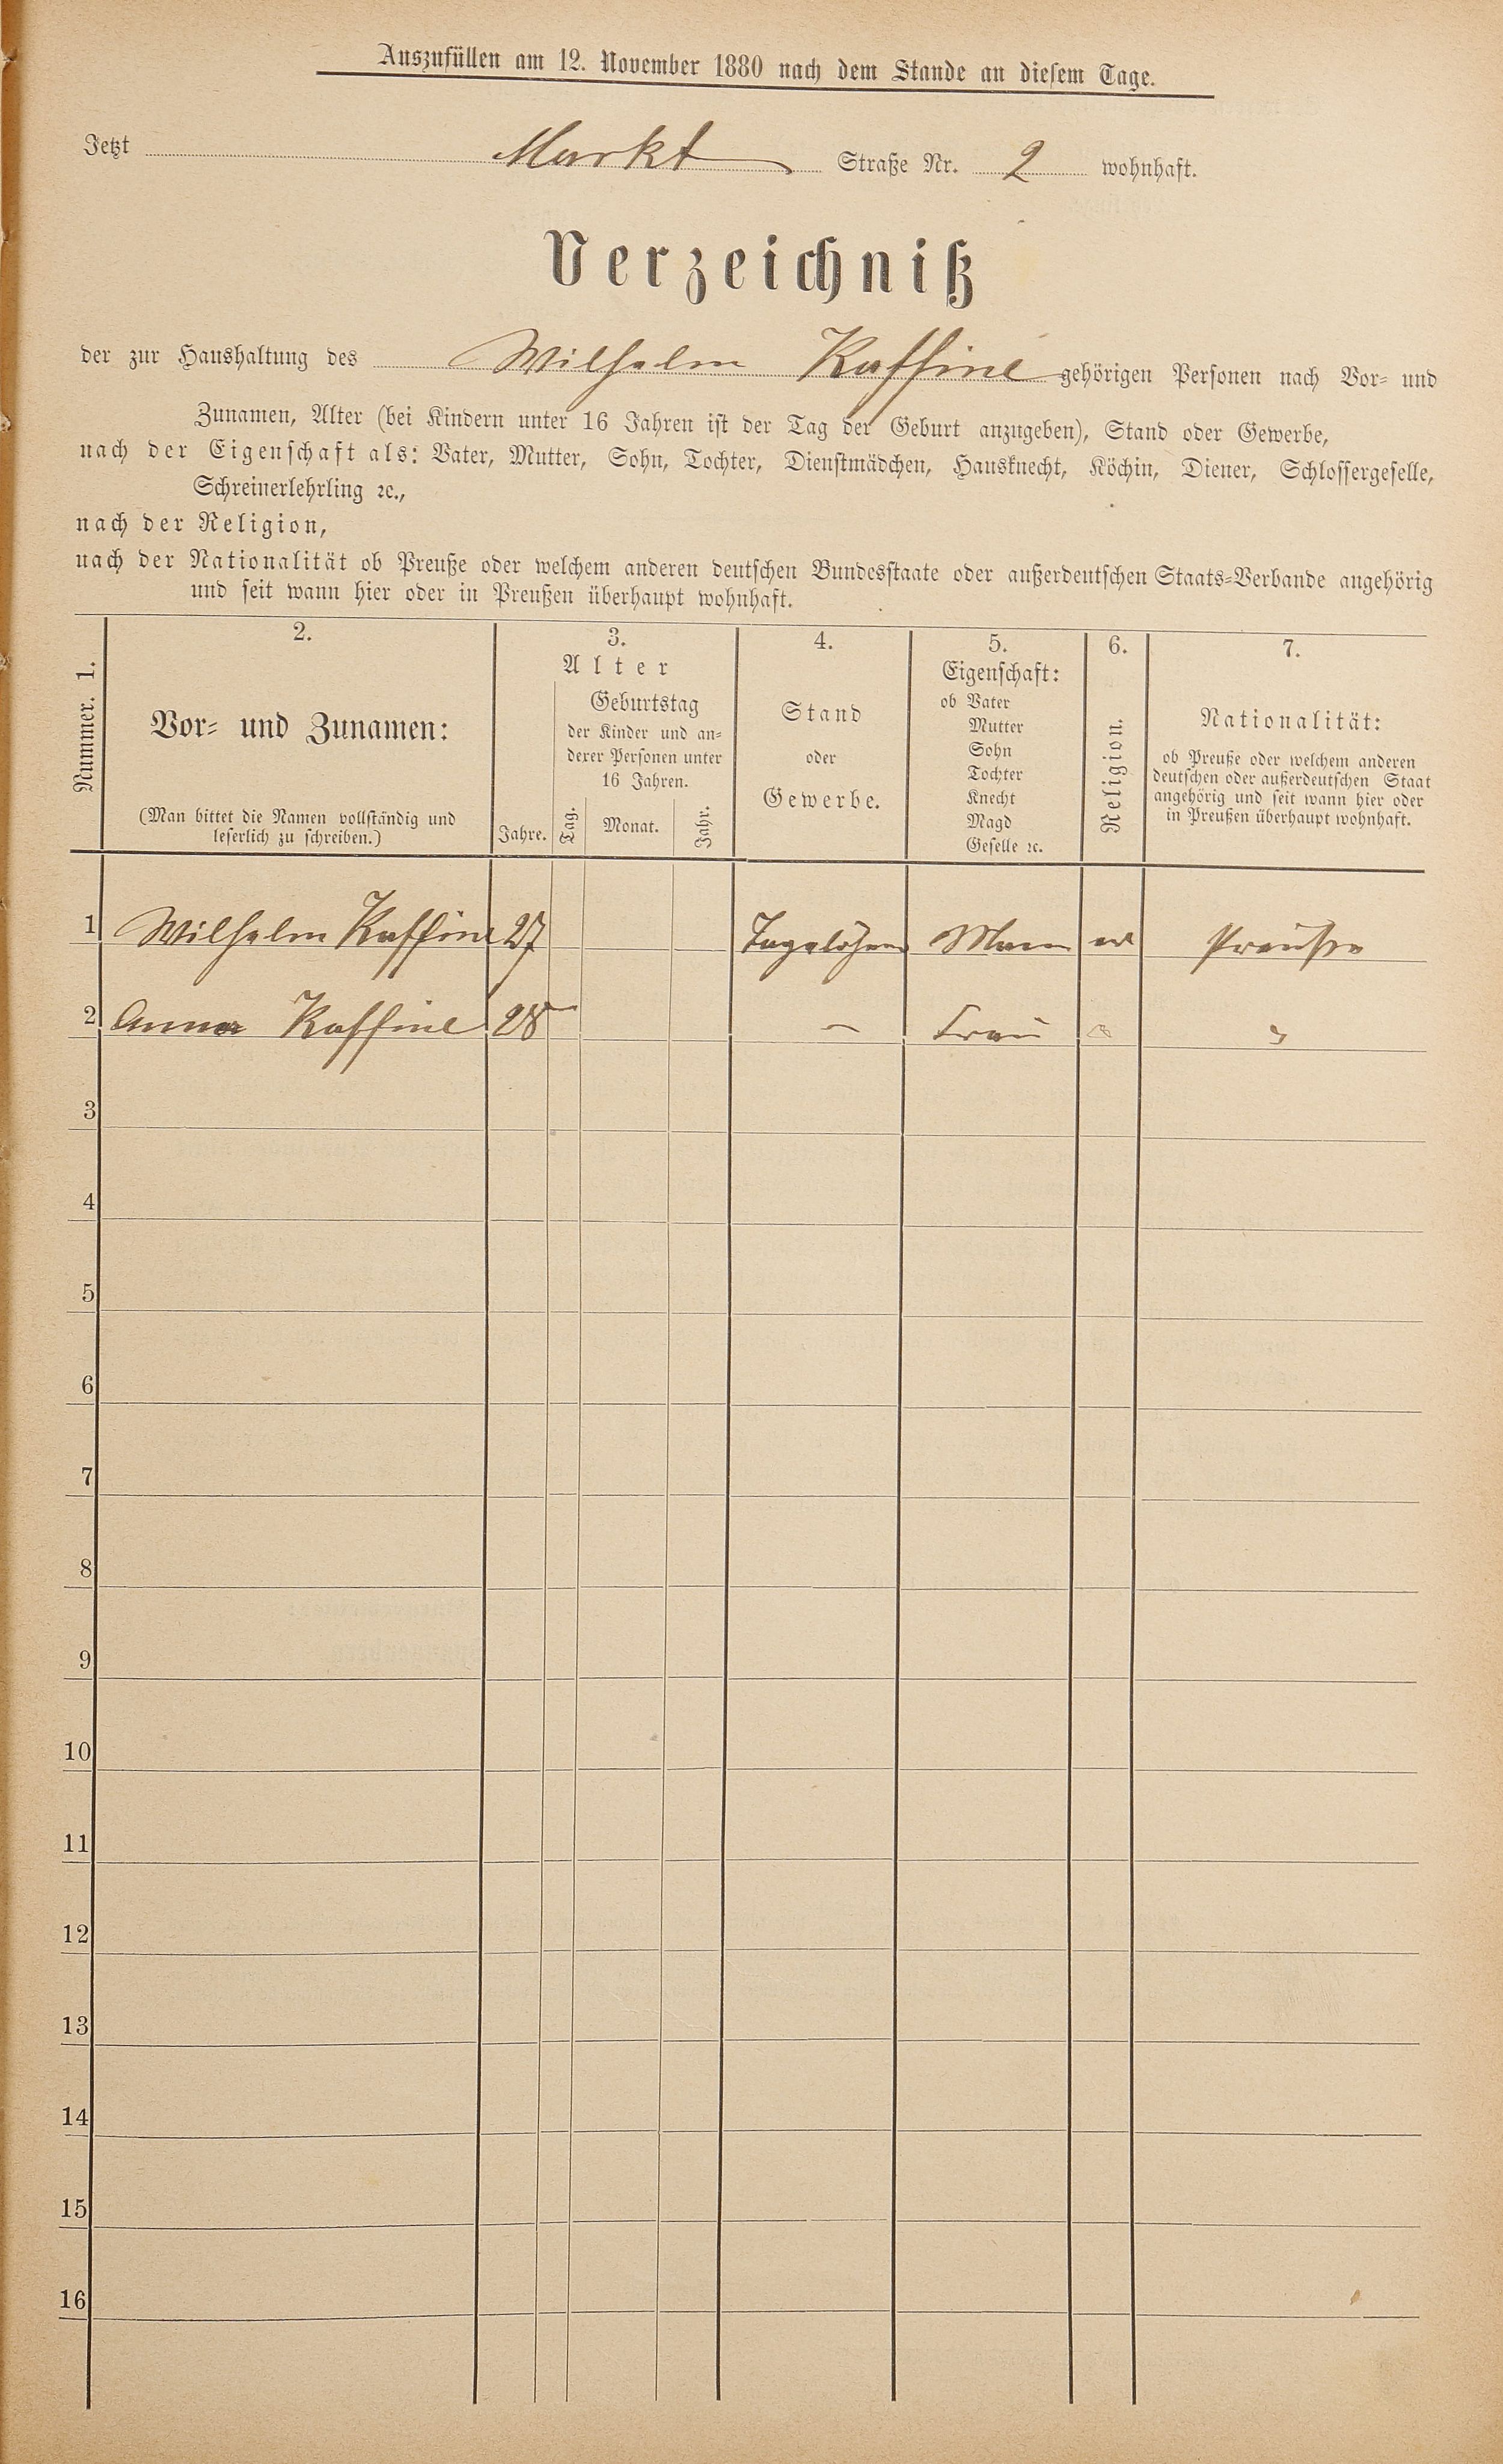 Auszufüllen am 12. November 1880 nach dem Stande an diesem Tage.
Jetzt Markt Straße Nr. 2 wohnhaft.
Verzeichniß
der zur Haushaltung des Wilhelm Kaffine gehörigen Personen nach Vor- und
Zunamen, Alter (bei Kindern unter 16 Jahren ist der Tag der Geburt anzugeben), Stand oder Gewerbe,
nach der Eigenschaft als: Vater, Mutter, Sohn, Tochter, Dienstmädchen, Hausknecht, Köchin, Diener, Schlossergeselle,
Schreinerlehrling ꝛc.,
nach der Religion,
nach der Nationalität ob Preuße oder welchem anderen deutschen Bundesstaate oder außerdeutschen Staats-Verbande angehörig
und seit wann hier oder in Preußen überhaupt wohnhaft.
Nummer. 1.
2.
Vor- und Zunamen:
(Man bittet die Namen vollständig und
leserlich zu schreiben.)
3.
Alter
Jahre.
Geburtstag
der Kinder und an-
derer Personen unter
16 Jahren.
Tag. Monat. Jahr.
4.
Stand
oder
Gewerbe.
5.
Eigenschaft:
ob Vater
Mutter
Sohn
Tochter
Knecht
Magd
Geselle ꝛc.
6.
Religion.
7.
Nationalität:
ob Preuße oder welchem anderen
deutschen oder außerdeutschen Staat
angehörig und seit wann hier oder
in Preußen überhaupt wohnhaft.
1 Wilhelm Kaffine 27 Tagelöhner Mann Preuße
2 Anna Kaffine 28 – Frau "
3
4
5
6
7
8
9
10
11
12
13
14
15
16